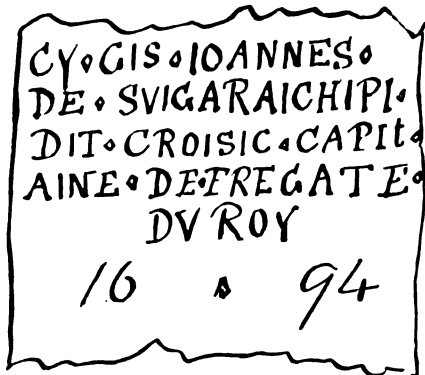 CY⋄GIS⋄IOANNES⋄
DE⋄SVIGARAICHIPI⋄
DIT⋄CROISIC⋄CAPIt⋄
AINE⋄DE⋄FREGATE⋄
DV ROY
16⋄94